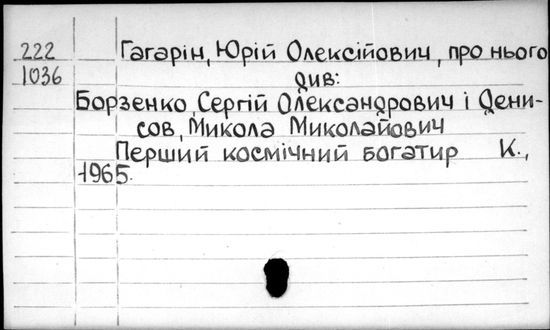 222 Гагарін, Юрій Олексійович, про нього
1036 див:
Борзенко, Сергій Олександрович і Дени-
сов, Микола Миколайович
Перший космічний богатир К.,
1965.